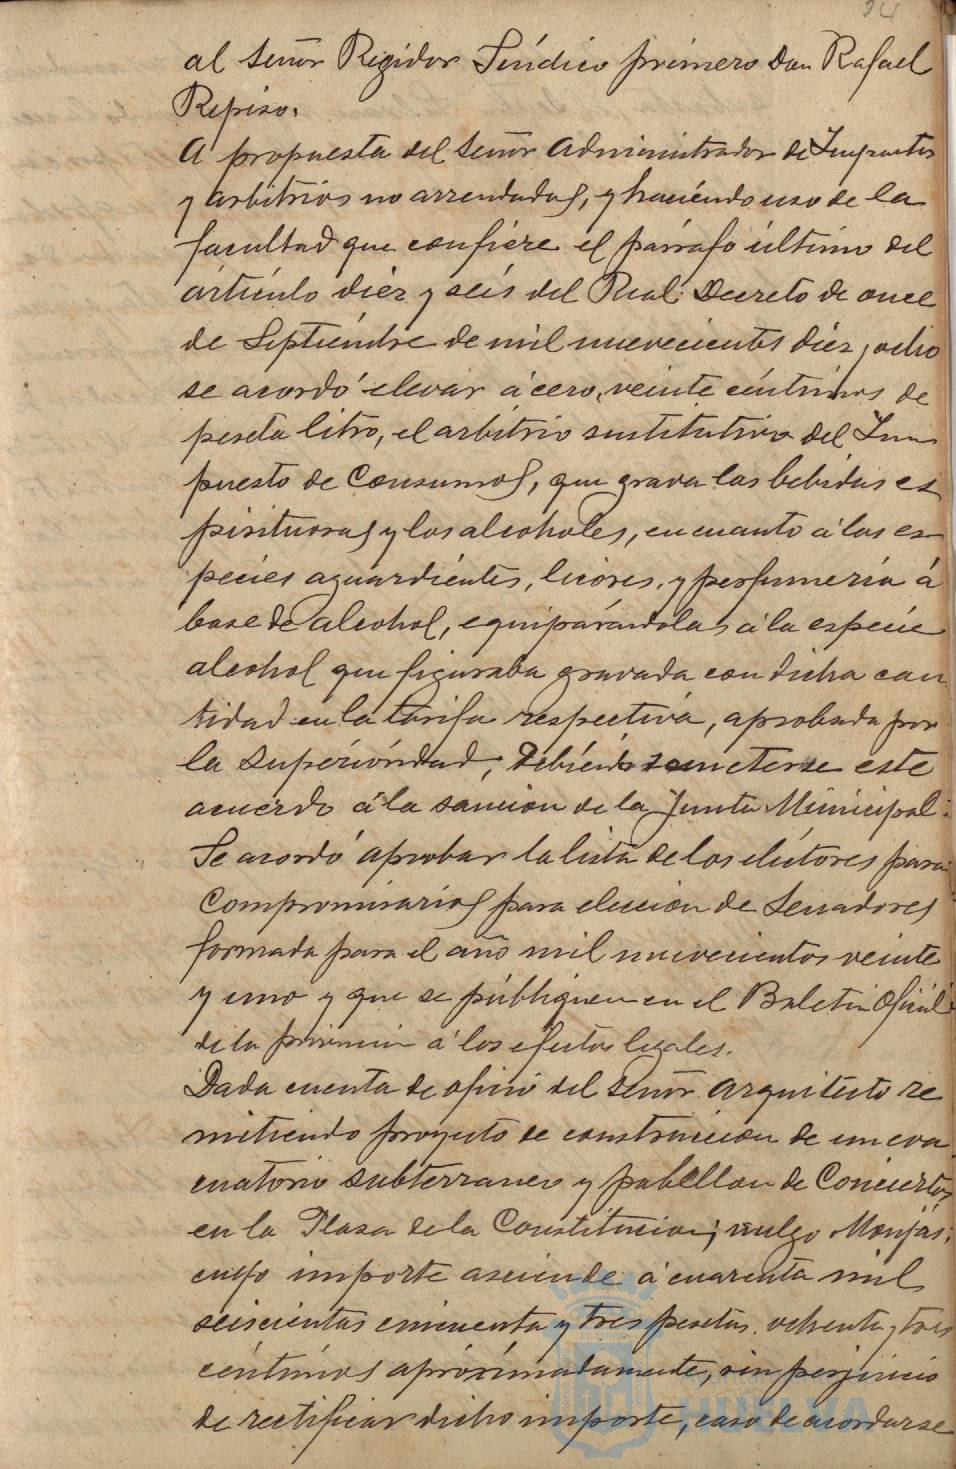 94
al Señor Regidor Síndico primero Don Rafael
Repiso.
A propuesta del Señor Administrador de Impuestos
y arbitrios no arrendados, y haciendo uso de la
facultad que confiere el párrafo último del
artículo diez y seis del Real Decreto de once
de Septiembre de mil nuevecientos diez y ocho
se acordó elevar á cero, veinte céntimos de
peseta litro, el arbitrio sustitutivo del Im
puesto de Consumos, que grava las bebidas es
pirituosas y los alcoholes, en cuanto á las es
pecies aguardientes, licores, y perfumería á
base de alcohol, equiparándolas á la especie
alcohol que figuraba gravada con dicha can
tidad en la tarifa respectiva, aprobada por
la Superioridad; debiendo someterse este
acuerdo á la sancion de la Junta Municipal.
Se acordó aprobar la lista de los electores para
Compromisarios para eleccion de Senadores
formada para el año mil nuevecientos veinte
y uno y que se publiquen en el Boletin Oficial
de la provincia á los efectos legales.
Dada cuenta de oficio del Señor Arquitecto re
mitiendo proyecto de construccion de un eva
cuatorio subterraneo y pabellon de Conciertos
en la Plaza de la Constitucion; vulgo Monjas;
cuyo importe asciende á cuarenta mil
seiscientas cincuenta y tres pesetas ochenta y tres
céntimos aproximadamente, sin perjuicio
de rectificar dicho importe, caso de acordarse
HUELVA